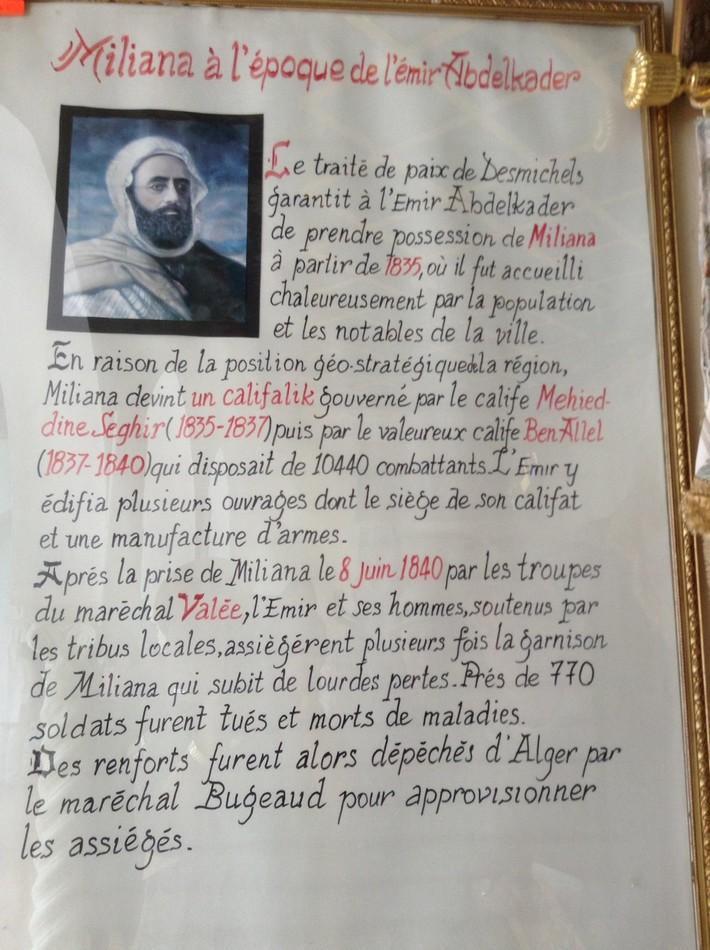 Miliana à l'époque de l'émir Abdelkader
Le traité de paix de Desmichels
garantit à l'Emir Abdelkader
de prendre possession de Miliana
à partir de 1835, où il fut accueilli
chaleureusement par la population
et les notables de la ville.
En raison de la position géo-stratégique de la région,
Miliana devint un califalik gouverné par le calife Mehied-
dine Seghir (1835-1837) puis par le valeureux calife Ben Allel
(1837-1840) qui disposait de 10440 combattants. L'Emir y
édifia plusieurs ouvrages dont le siège de son califat
et une manufacture d'armes.
Aprés la prise de Miliana le 8 juin 1840 par les troupes
du maréchal Valée, l'Emir et ses hommes, soutenus par
les tribus locales, assiégérent plusieurs fois la garnison
de Miliana qui subit de lourdes pertes. Prés de 770
soldats furent tués et morts de maladies.
Des renforts furent alors dépéchés d'Alger par
le maréchal Bugeaud pour approvisionner
les assiégés.